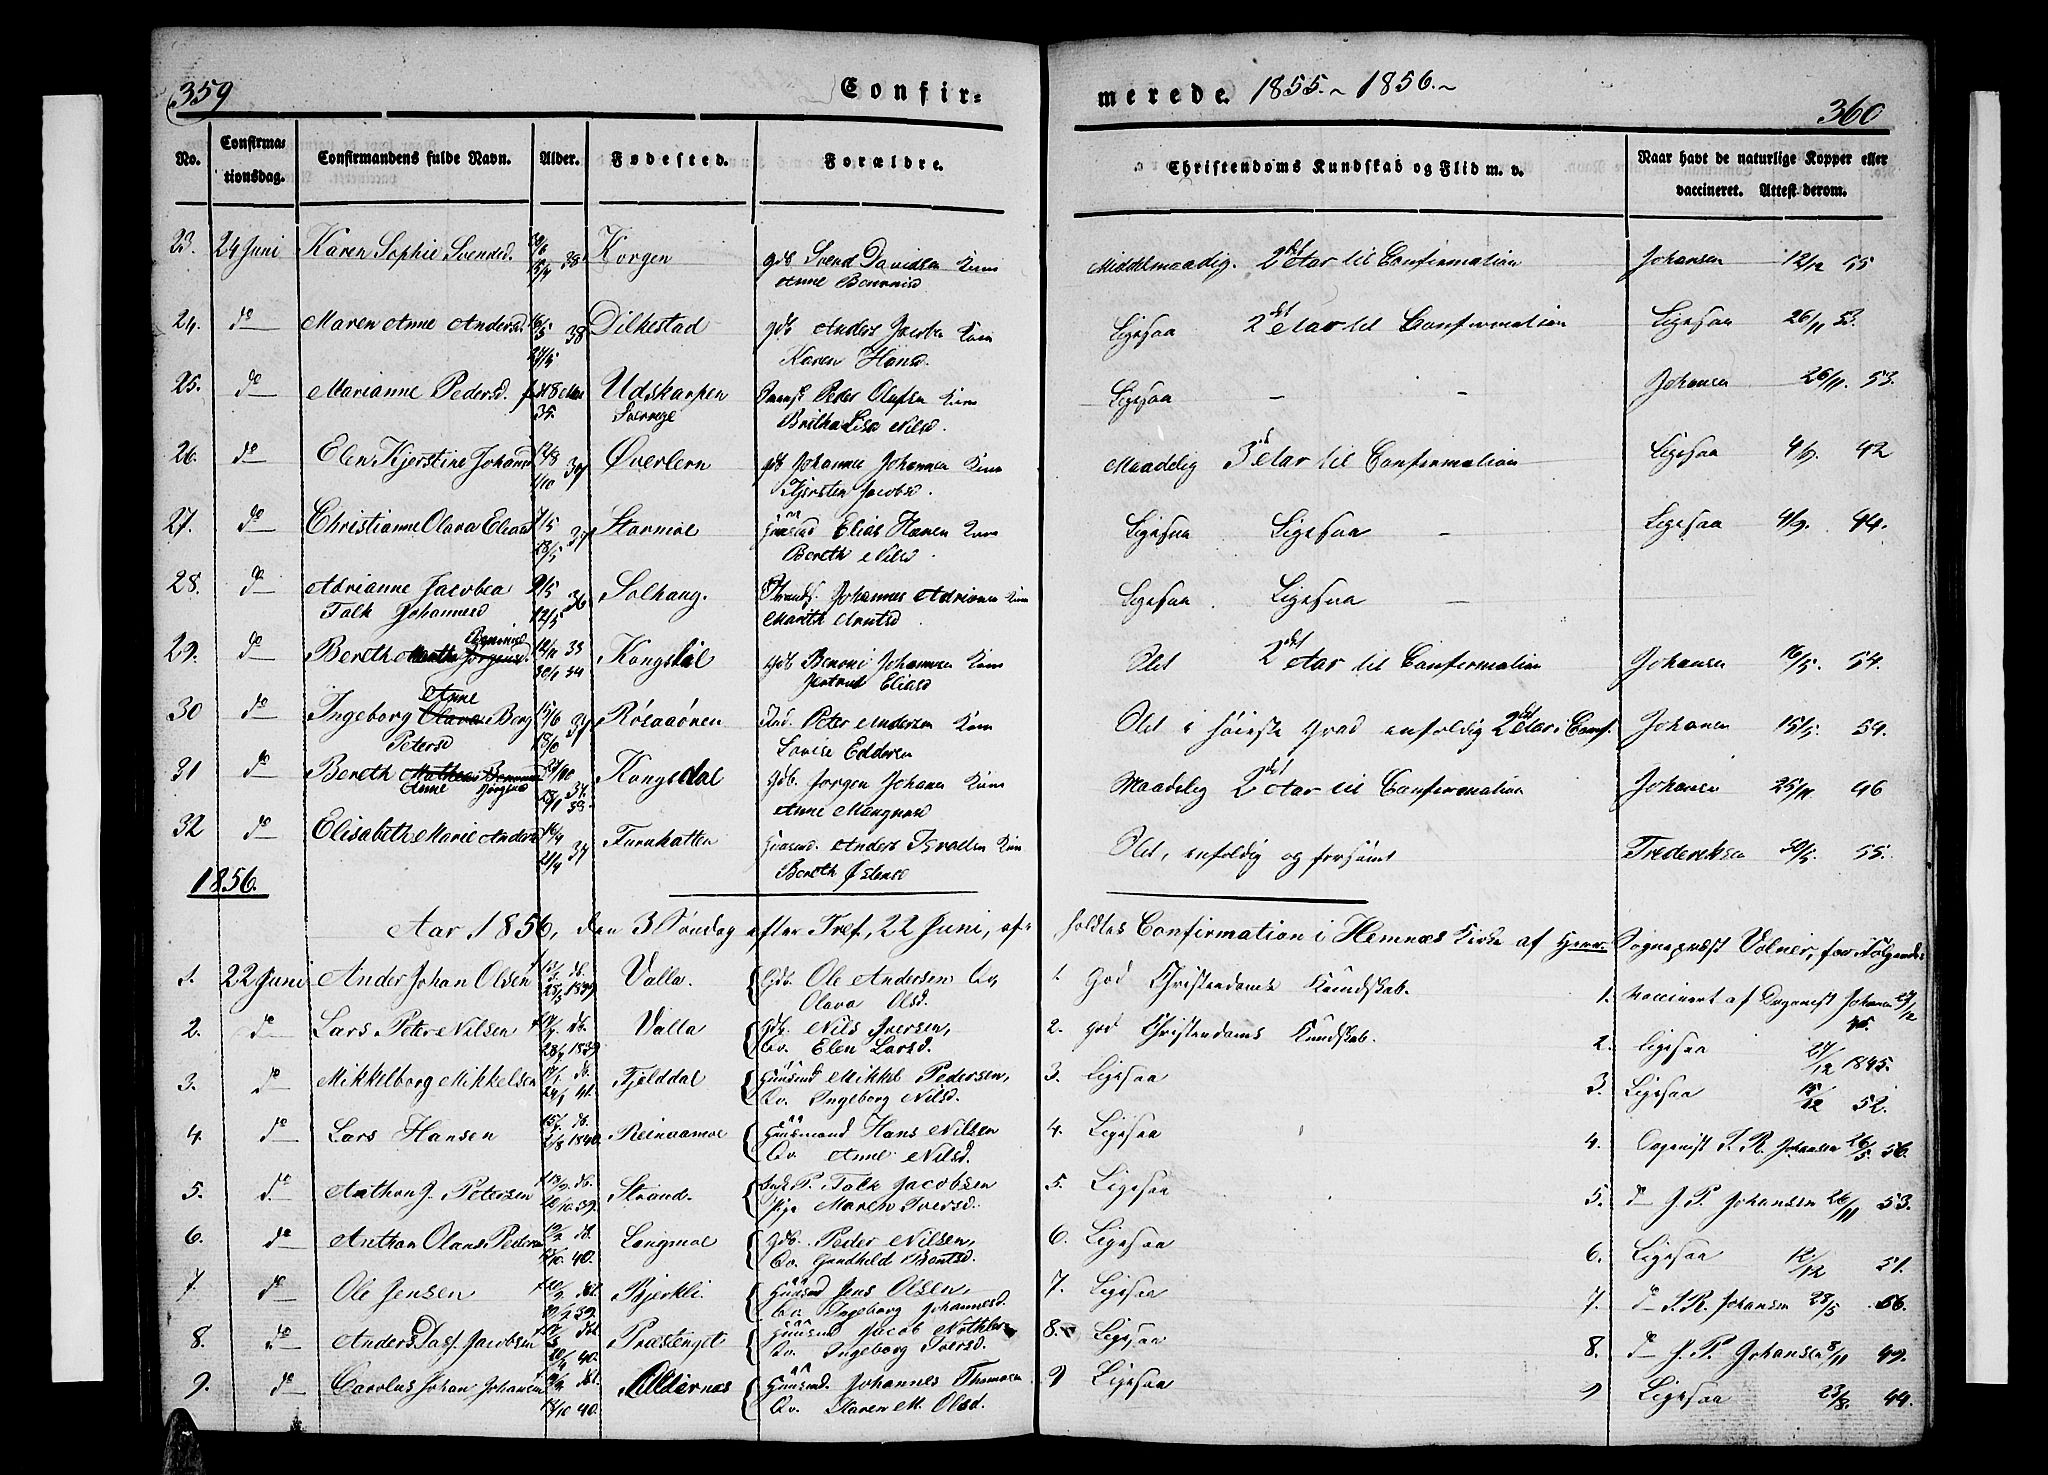 359
Confir-
merede. 1855. ~ 1856. ~
360
No.
Confirma-
tionsdag.
Confirmandens fulde Navn.
Alder.
Fødested.
Forældre.
Christendoms Kundskab og Flid m. v.
Naar havt de naturlige Kopper eller
vaccineret. Attest derom.
23. 24 Juni Karen Sophie Svendsd. 38 Korgen gdb Svend Davidsen Kone
Anne
Middelmaadig. 2det Aar til Confirmation Johansen 12/12 55
24. do Maren Anne Andersd. 38 gdb Anders Jacobs Kone
Karen Hansd.
Ligesaa 2det Aar til Confirmation Ligesaa 26/11 53.
25. do Marianne Pedersd. 35. Udskarpen
Sverrige
Peder Olufsen Kone
Britha Lisa Nilsd
Ligesaa - - Johansen 26/11. 53.
26. do Elen Kjerstine Johans 37 Øverlern gdb Johannes Johannes Kone
Kjersten Jacobsd.
Maadelig 3die Aar til Confirmation Ligesaa 4/9. 42
27. do Christianne Olava Eliasd 37 Stormoe Huusmd Elias Hansen Kone
Bereth Nilsd
Ligesaa Ligesaa - Ligesaa 4/9. 44.
28. do Adrianne Jacobea
Falk Johannesd
9/5
12/5 36 Solhaug. Strands. Johannes Adriansen Kone
Marith Arntsd
Ligesaa Ligesaa -
29. do Bereth Martha Jørgensd. Benonisd Kongsdal gdb Benoni Johannesen Kone
Jertrud Eliasd
Slet 2det Aar til Confirmation Johansen 16/5. 54.
30 do Ingeborg Olava Berg Anne
Petersd
37 Røsaaøren Ind. Peter Andersen Kone
Lovise Eddesen
Slet i høieste Grad enfoldig 2det Aar i Conf. Johansen 15/5. 54.
31 do Bereth Mathea Benonisd
Anne Jørgensd
Kongsdal gdb. Jørgen Johansen Kone
Anne Mangnusd
Maadelig 2det Aar til Confirmation Johansen 25/11 46
32 do Elisabeth Marie Andersd 16/4
21/4 37 Furuhatten Huusmd. Anders Kone
Bereth
Slet, enfoldig og forsømt Frederiksen 30/5. 55.
1856.
Aar 1856, den 3 Søndag efter Tref, 22 Juni, af-
holdtes Confirmation i Hemnæs Kirke af Herr. Sognepræst Volner, for Følgende:
1. 22 Juni Anders Johan Olsen 1839 Valla. Gdb. Ole Andersen Qv.
Olava Olsd.
1. God Christendoms Kundskab. 1. Vaccineret af Organist Johansen 27/12
45.
2. do Lars Peter Nilsen 1839 Valla Gdb. Nils Iversen,
Qv. Elen Larsd.
2. god Christendoms Kundskab. 2. Ligesaa 27/12 1845.
3. do Mikkelborg Mikkelsen 41. Fjelddal Huusmd Mikkel Pedersen,
Qv. Ingeborg Nilsd.
3. Ligesaa 3. Ligesaa 15/12 52.
4. do Lars Hansen 1840. Reinaamoe Huusmand Hans Nilsen
Qv. Anne Nilsd.
4. Ligesaa 4. Organist S. R. Johansen 26/5. 56.
5. do Anthon J. Petersen 39. Strand. P. Falk Jacobsen
Pige Maren Iversd.
5. Ligesaa 5. do J. P. Johansen 26/11 53.
6. do Anthon Olaus Peders 40. Langmoe Gdb. Peder Nilsen,
Qv. Gundheld Bentsd.
6. Ligesaa 6. Ligesaa 12/12 51.
7. do Ole Jensen 39. Bjerkli. Huusmd Jens Olsen,
Qv. Ingeborg Johannesd.
7. Ligesaa 7. do S. R. Johansen 28/5 56.
8. do Anders Dass Jacobsen 40. Præstenget Huusmd Jacob
Qv. Ingeborg Iversd.
8. Ligesaa 8. do J. P. Johansen 8/11 49.
9. do Carolus Johan Johansen 40. Aldernes Huusmd. Johannes Thomasen
Qv. Karen M. Olsd.
9 Ligesaa 9 Ligesaa 23/8. 44.